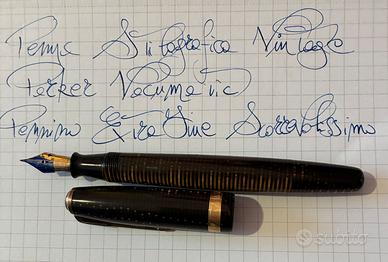 Penna Stilografica Vintage
Parker Vacumatic
Pennino Extra Fine Scorrevolissimo
subito